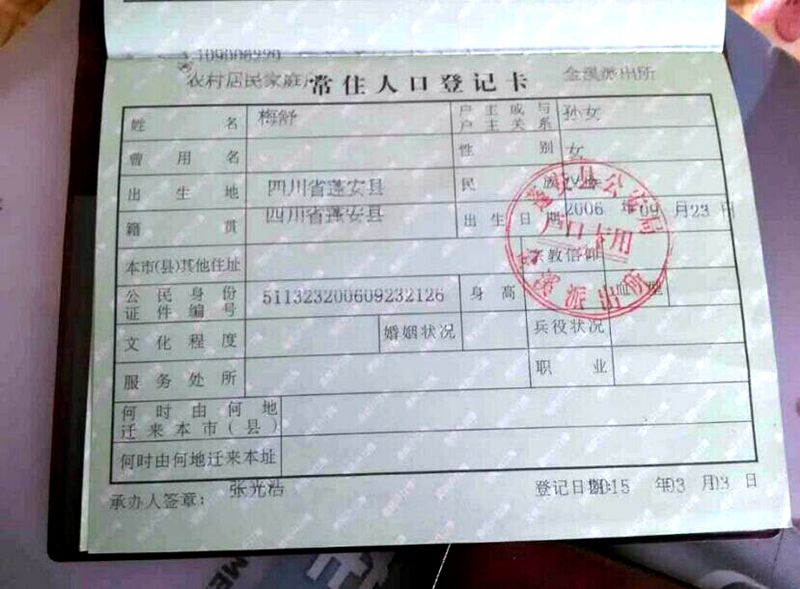 109008990
农村居民家庭户 常住人口登记卡 金溪派出所
姓名 梅舒 户主或与户主关系 孙女
曾用名 性别 女
出生地 四川省蓬安县 民族
籍贯 四川省蓬安县 出生日期 2006 年 09 月 23 日
本市(县)其他住址 宗教信仰
公民身份证件编号 511323200609232126 身高 血型
文化程度 婚姻状况 兵役状况
服务处所 职业
何时由何地迁来本市(县)
何时由何地迁来本址
承办人签章: 张光浩 登记日期: 2015 年 03 月 13 日
公安局
户口专用
派出所